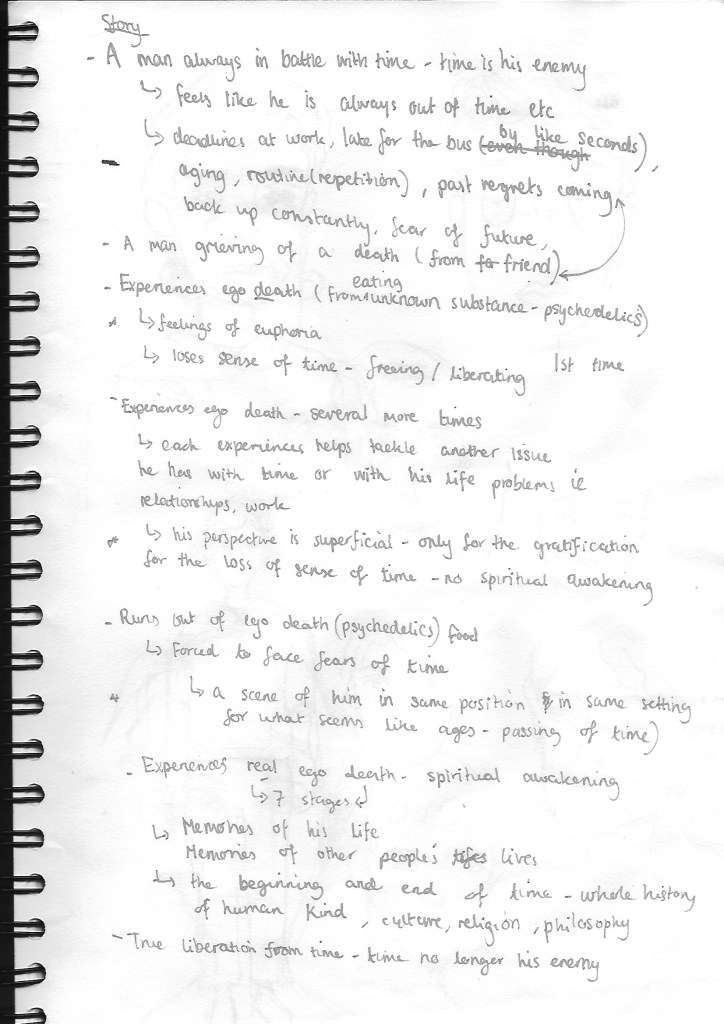 Story
- A man always in battle with time - time is his enemy
↳ feels like he is always out of time etc
↳ deadlines at work, late for the bus (even though by like seconds),
- aging, routine (repetition), past regrets coming
back up constantly, fear of future,
- A man grieving of a death (from fo friend)
- Experiences ego death (from eating unknown substance - psychedelics)
* ↳ feelings of euphoria
↳ loses sense of time - freeing / liberating 1st time
- Experiences ego death - several more times
↳ each experiences helps tackle another issue
he has with time or with his life problems ie
relationships, work
* ↳ his perspective is superficial - only for the gratification
for the loss of sense of time - no spiritual awakening
- Runs out of ego death (psychedelics) food
↳ Forced to face fears of time
* ↳ a scene of him in same position & in same setting
for what seems like ages - passing of time)
- Experiences real ego death - spiritual awakening
↳ 7 stages
↳ Memories of his life
Memories of other people's lifes lives
↳ the beginning and end of time - whole history
of human kind, culture, religion, philosophy
- True liberation from time - time no longer his enemy